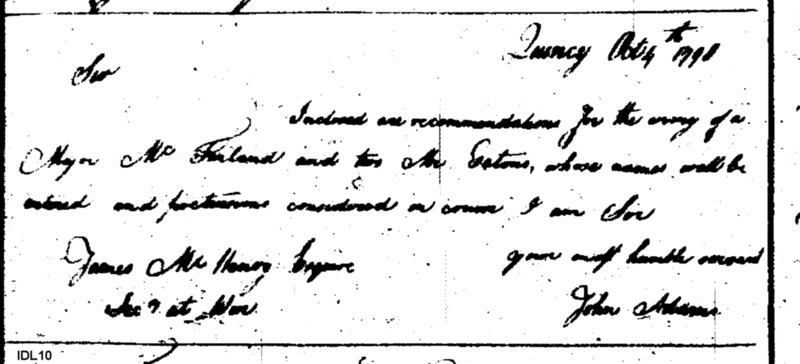 Quincy Oct 4th 1798
Sir
Inclosed are recommendations for the army of a
Major Mc Farland and two Mr Eatons, whose names will be
entered and pretensions considered in course I am Sir
James Mc Henry Esquire your most humble servant
Secy at War. John Adams
IDL10